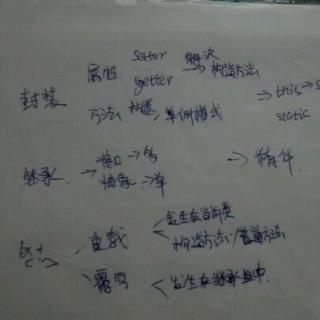 setter 解决
属性 getter → 构造方法
封装 → this → s
方法 构造, 单例模式 static
继承 → 接口 → 多
→ 抽象 → 单
重载 < 发生在当前类
构造方法 / 普通方法
覆写 < 发生在继承类中